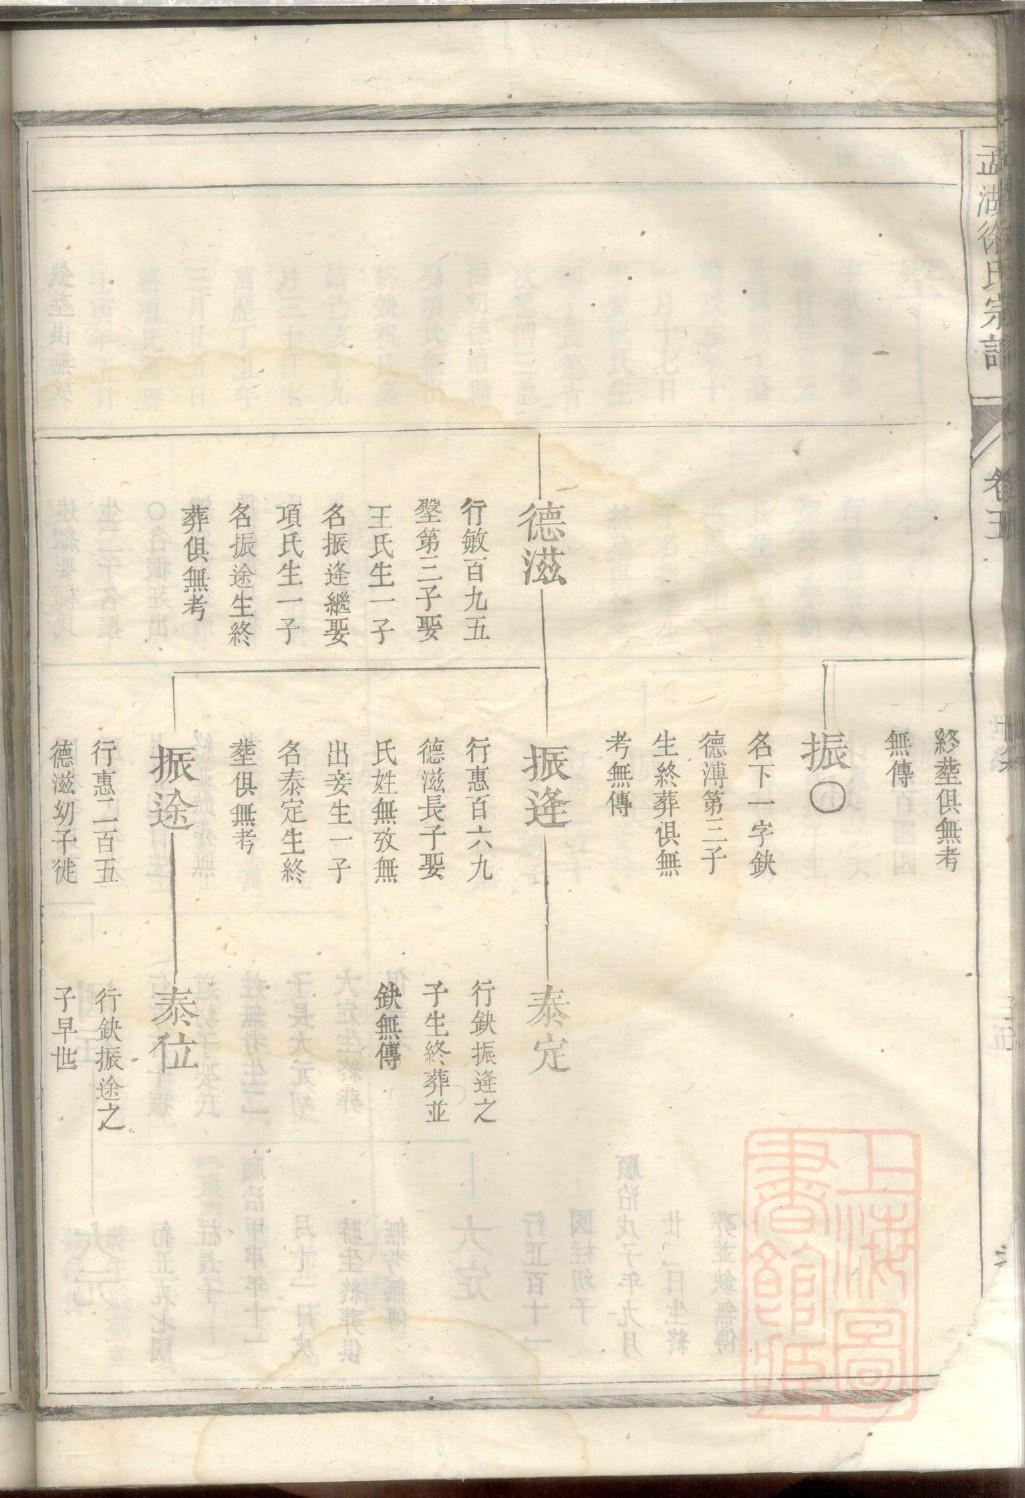 孟湖徐氏宗譜
卷五
德滋
行敏百九五
壂第三子娶
王氏生一子
名振逢繼娶
項氏生一子
名振途生終
葬俱無考
終塟俱無考
無傳
振〇
名下一字鈌
德溥第三子
生終葬俱無
考無傳
振逢
行惠百六九
德滋長子娶
氏姓無攷無
出妾生一子
名泰定生終
塟俱無考
振途
行惠二百五
德滋幼子徙
泰定
行鈌振逢之
子生終葬並
鈌無傳
泰位
行鈌振途之
子早世
上海圖
書館藏